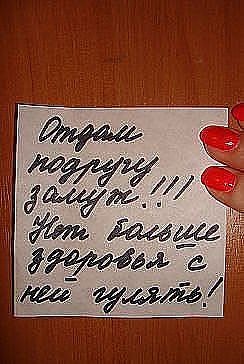 Отдам
подругу
замуж!!!
Нет больше
здоровья с
ней гулять!